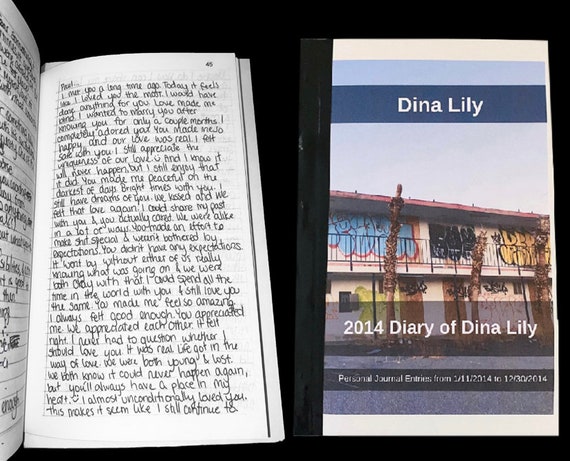 45
Paul-
I met you a long time ago. Today it feels
like I loved you the most. I would have
done anything for you. Love made me
blind. I wanted to marry you after
knowing you for only a couple months. I
completely adored you. You made me so
happy, and our love was real. I felt
safe with you. I still appreciate the
uniqueness of our love. And I know it
will never happen, but I still enjoy that
it did. You made me peaceful on the
darkest of days. Bright times with you. I
still have dreams of you. We kissed and we
felt that love again. I could share my past
with you & you actually cared. We were alike
in a lot of ways. You made an effort to
make shit special & weren't bothered by
expectations. You didn't have any expectations.
It went by without either of us really
knowing what was going on & we were
both okay with that. I could spend all the
time in the world with you & still love you
the same. You made me feel so amazing.
I always felt good enough. You appreciated
me. We appreciated each other. It felt
right. I never had to question whether I
should love you. It was real. Life got in the
way of love. We were both young & lost.
We both know it could never happen again,
but you'll always have a place in my
heart. I almost unconditionally loved you.
This makes it seem like I still continue to
enough
Dina Lily
2014 Diary of Dina Lily
Personal Journal Entries from 1/11/2014 to 12/30/2014